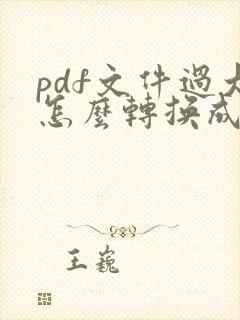 pdf文件過大
怎麼轉換成
王巍